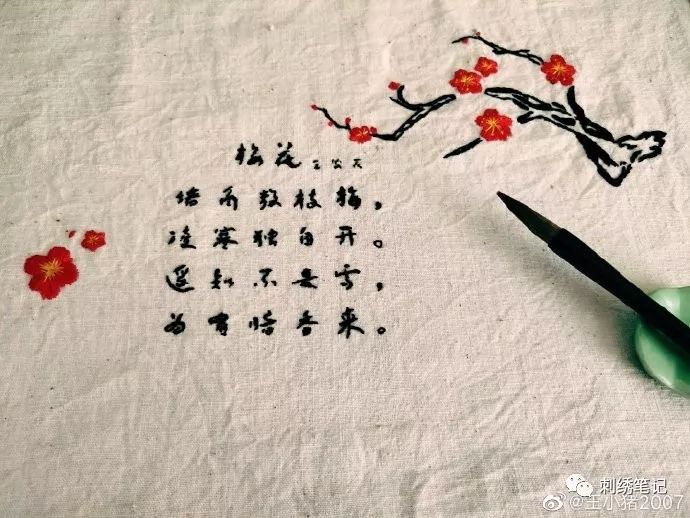 梅花 王安石
墙角数枝梅，
凌寒独自开。
遥知不是雪，
为有暗香来。
刺绣笔记
@王小猪2007